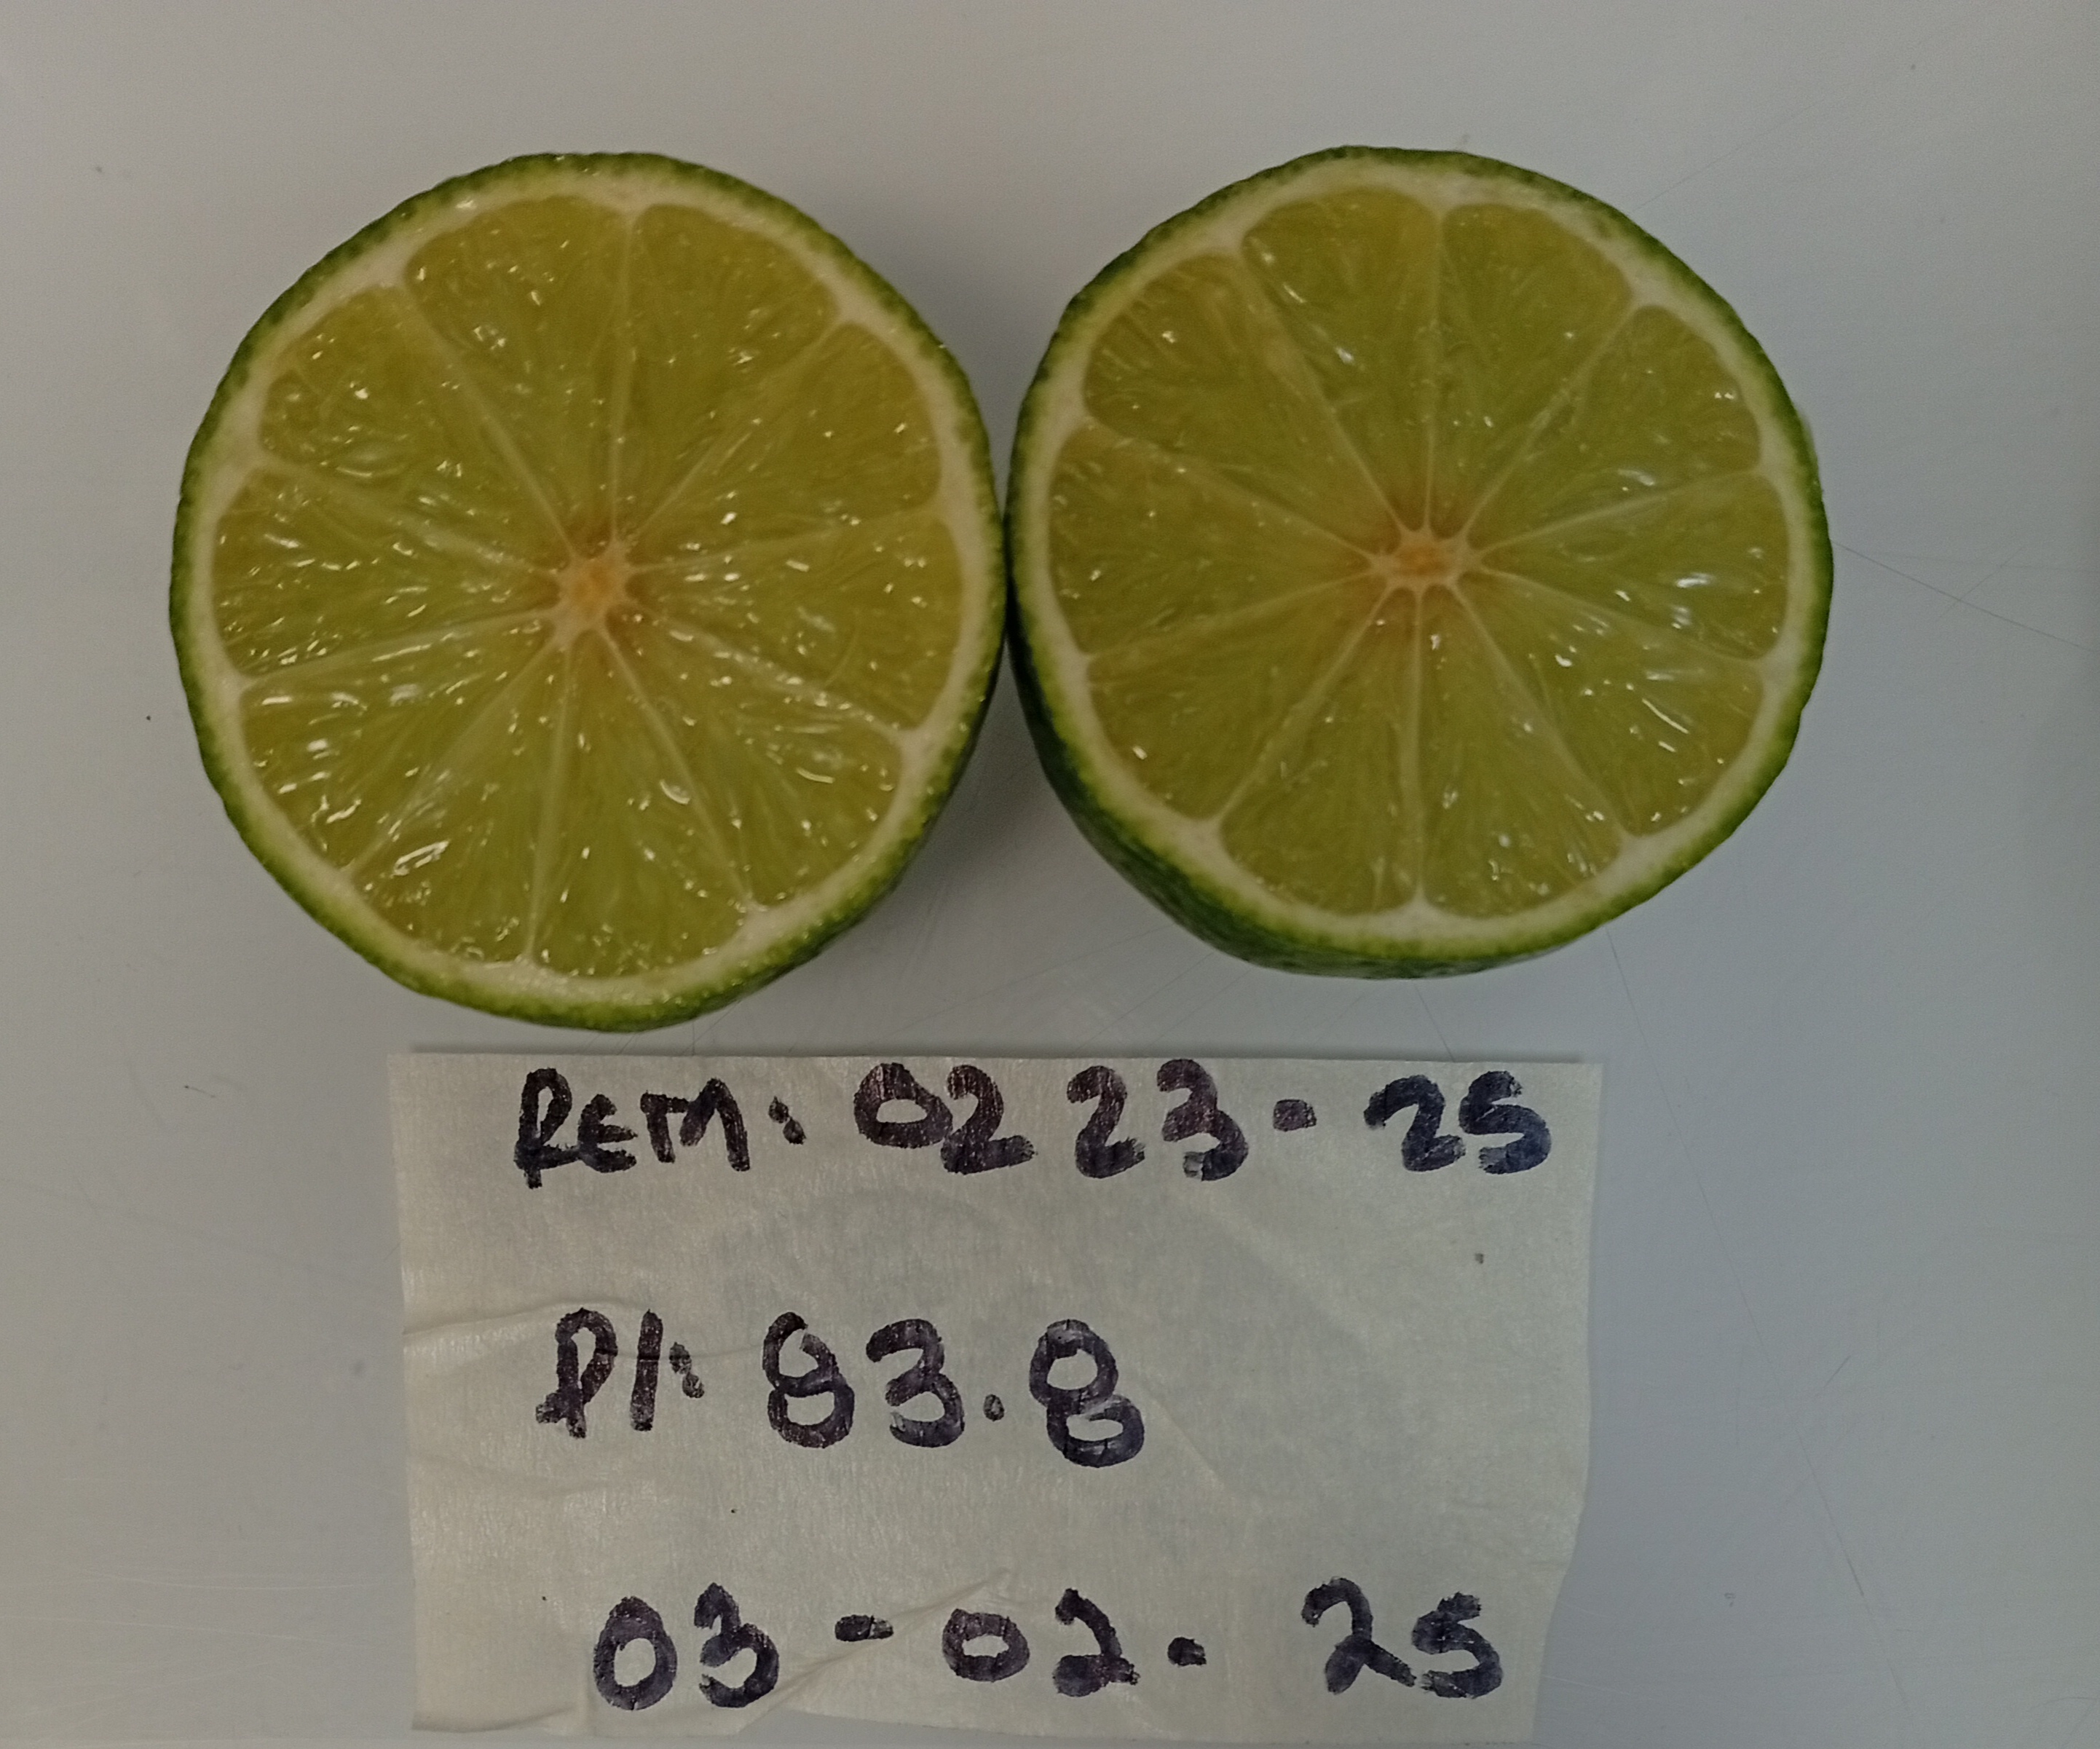 REM: 0223-25
PI: 83.8
03-02-25